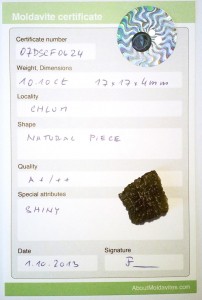 Moldavite certificate
Certificate number
07DSCF0624
Weight, Dimensions
10.10ct 17x17x4mm
Locality
CHLUM
Shape
NATURAL PIECE
Quality
A+/++
Special attributes
SHINY
Date
Signature
1.10.2013
AboutMoldavites.com